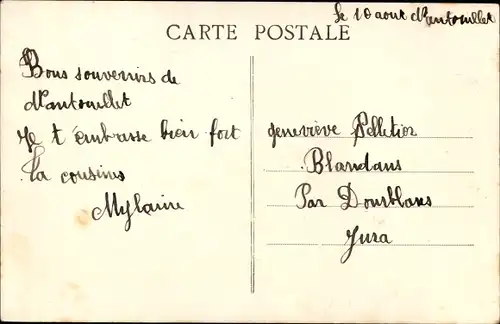 le 10 aout Nantouillet
CARTE POSTALE
Bons souvenirs de
Nantouillet
Je t'embrasse bien fort
Ta cousine
geneviève Pelletier
Blandans
Par Domblans
Jura